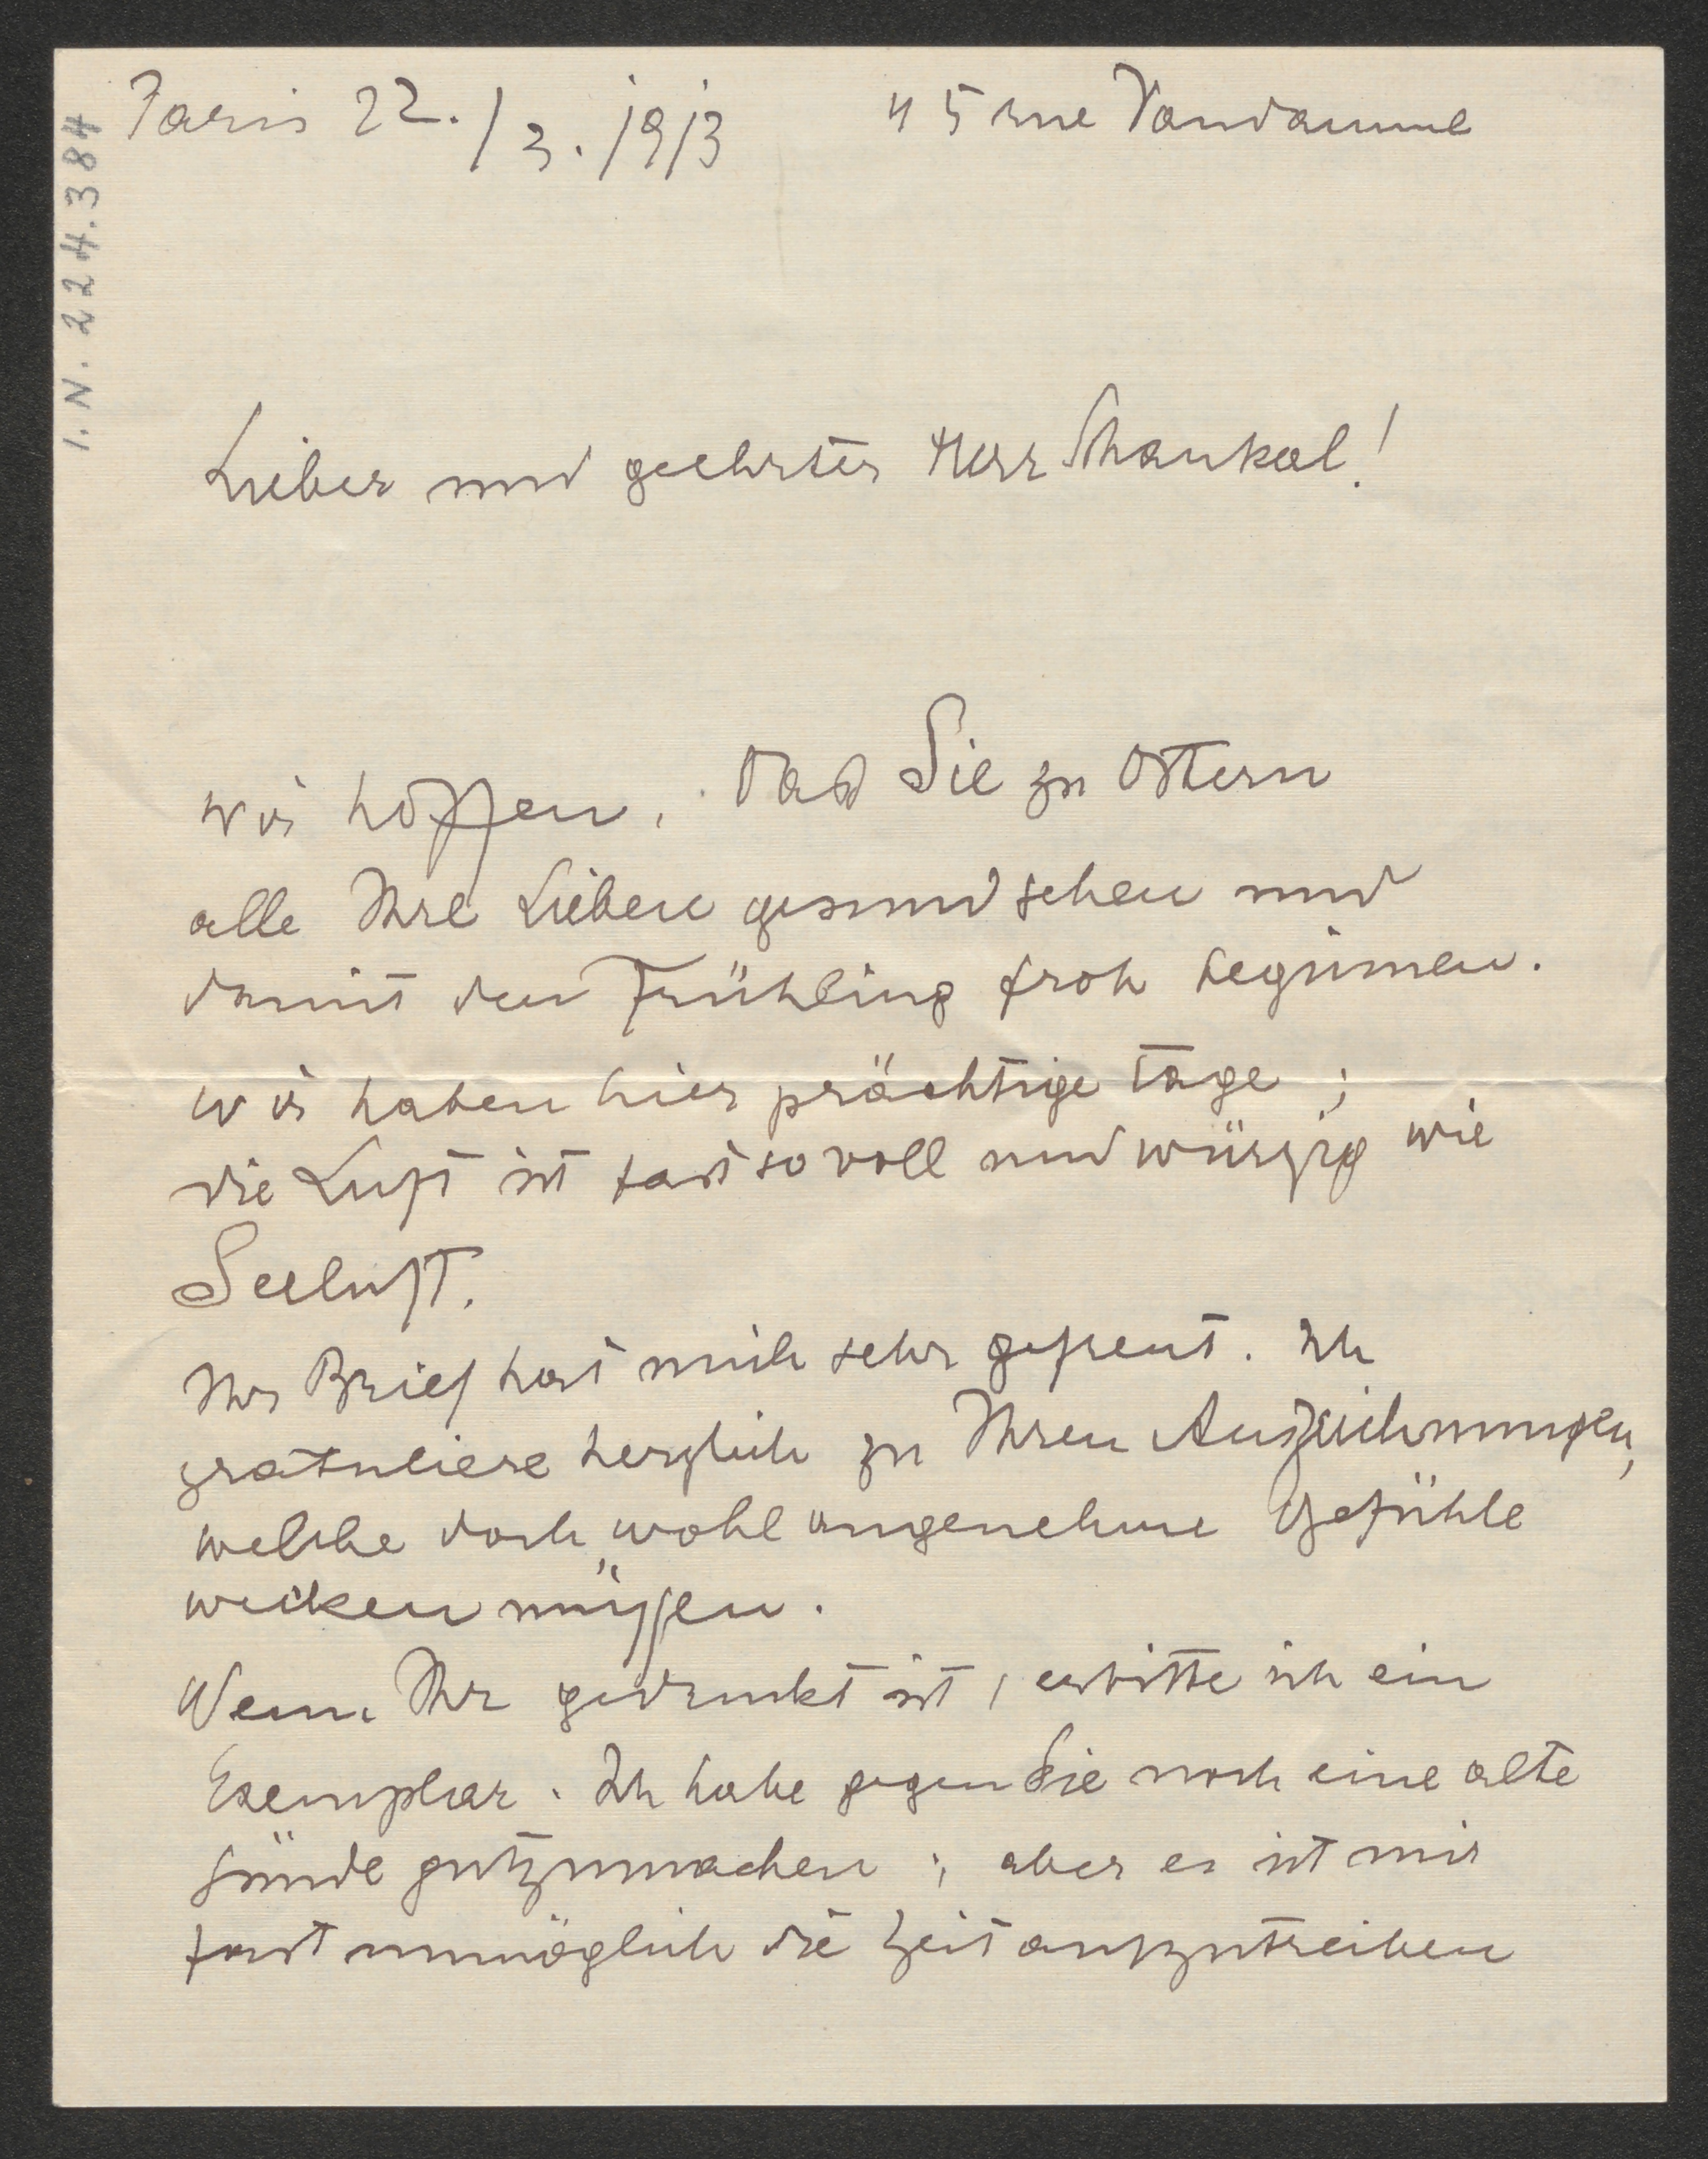 Paris 22./3. 1913 45 rue Vandamme
I.N. 224.384
Lieber und geehrter Herr Schaukal!
wir hoffen, daß Sie zu Ostern
alle Ihre Lieben gesund sehen und
damit den Frühling froh beginnen.
wir haben hier prächtige Tage;
die Luft ist fast so voll und würzig wie
Seeluft.
Ihr Brief hat mich sehr gefreut. Ich
gratuliere herzlich zu Ihren Auszeichnungen,
welche doch wohl angenehme Gefühle
wecken müssen.
Wenn Ihr gedruckt ist, erbitte ich ein
Exemplar. Ich habe gegen Sie noch eine alte
Sünde gutzumachen; aber es ist mir
fast unmöglich die Zeit aufzutreiben